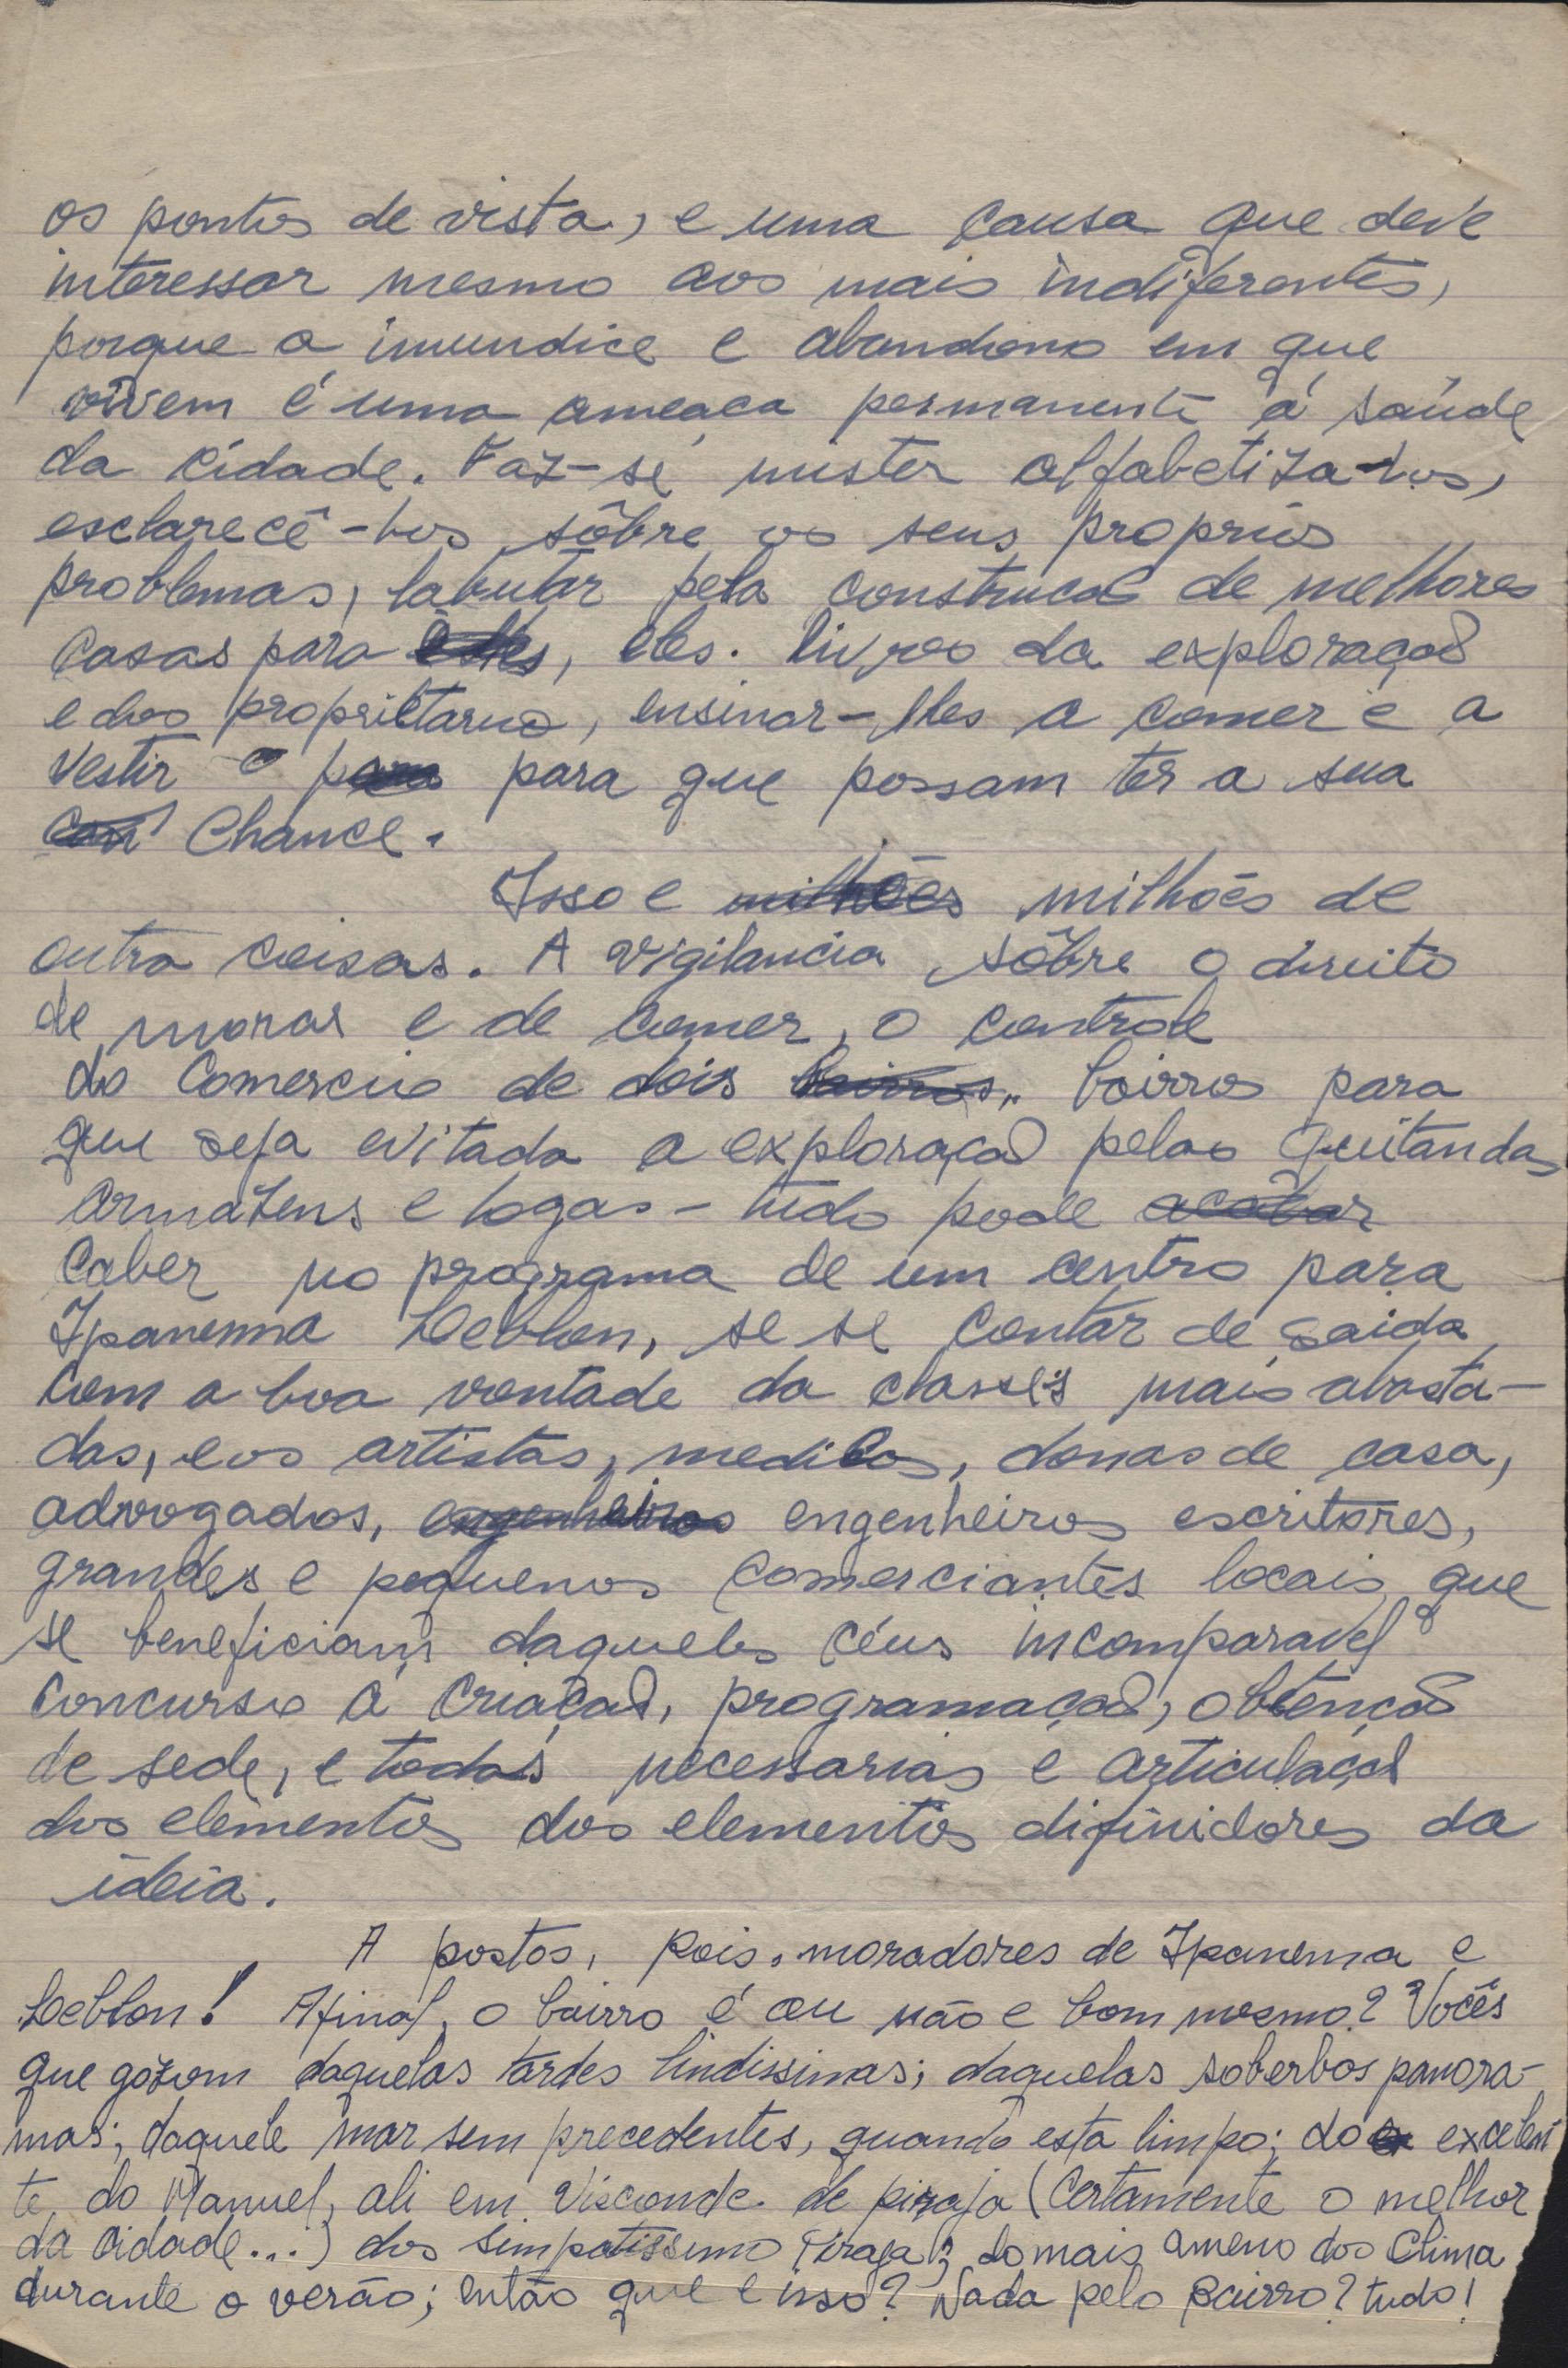 os pontos de vista, e uma causa que deve
interessar mesmo aos mais indiferentes,
porque a imundice e abandono em que
vivem é uma ameaça permanente á saúde
da cidade. Faz-se mister alfabetiza-los,
esclarecê-los sôbre os seus proprios
problemas, labutar pela construcaõ de melhores
casas para êstes, eles. livres da exploraçaõ
e dos proprietarios, ensinar-lhes a comer e a
vestir e para para que possam ter a sua
com chance.
Isso e milhões milhões de
outra coisas. A vigilancia sôbre o direito
de morar e de comer, o controle
do comercio de dois bairros,, bairros para
que seja evitada a exploraçaõ pelas quitandas
armazens e logas - tudo pode acabar
caber no programa de um centro para
Ipanema Leblon, se se contar de saida
com a boa vontade da classes mais abasta-
das, e os artistas, medicos, donas de casa,
advogados, engenheiros engenheiros escritores,
grandes e pequenos comerciantes locais que
se beneficiam daqueles céus incomparavel
concurso á criaçaõ, programaçaõ, obtençaõ
de sede, e todas necessarias e articulaçaõ
dos elementos dos elementos difinidores da
ideia.
A postos, pois, moradores de Ipanema e
Leblon! Afinal, o bairro é ou não e bom mesmo? Vocês
que gózam daquelas tardes lindissimas; daquelas soberbos panora-
mas; daquele mar sem precedentes, quando esta limpo; do ex excelen-
te, do Manuel, ali em Visconde de piraja (Certamente o melhor
da cidade...) dos simpatissimo Piraja; do mais ameno dos clima
durante o verão; então que e isso? Nada pelo Bairro? tudo!